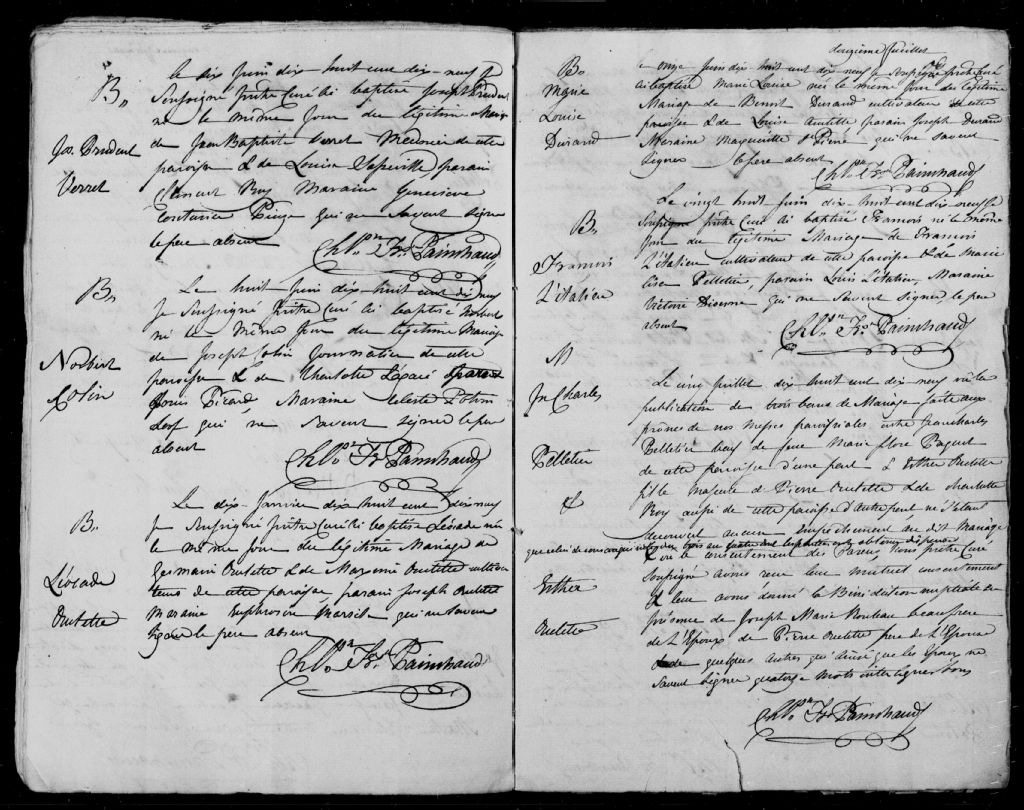 B.
Jos. Prudent
Verret
Le dix Juin dix huit cent dix neuf Je
Soussigné prêtre Curé ai baptisé Joseph Prudent
né le même Jour du légitime Mariage
de Jean Baptiste Verret Meunier de cette
paroisse & de Louise parain
Roy Maraine Genevieve
qui ne Savent signer
le père absent
Chls. Frs Painchaud
B.
Norbert
Colin
Le huit Juin dix huit cent dix neuf
Je Soussigné Prêtre Curé ai baptisé Norbert
né le Même Jour du légitime Mariage
de Joseph Colin Journalier de cette
paroisse & de Charlotte Legaré parain
Louis Picard, Maraine Celeste
qui ne Savent signer le père
absent
Chls. Frs Painchaud
B.
Léocade
Ouelette
Le dix Janvier dix huit cent dix neuf
Je Soussigné prêtre Curé ai baptisé Léocade née
le même Jour du légitime Mariage de
Germain Ouelette & de Marzenne Ouelette cultiva
teurs de cette paroisse, parain Joseph Ouelette
Maraine Euphrosine qui ne Savent
signer le père absent
Chls. Frs Painchaud
deuxième feuillet
B.
Marie
Louise
Durand
Le onze Juin dix huit cent dix neuf Je Soussigné prêtre Curé
ai baptisé Marie Louise née le même Jour du légitime
Mariage de Benoit Durand cultivateur de cette
paroisse & de Louise Ouelette parain Joseph Durand
Maraine Marguerite St Pierre qui ne Savent
Signer le père absent
Chls. Frs Painchaud
B.
François
L'italien
Le vingt huit Juin dix-huit cent dix neuf Je
Soussigné prêtre Curé ai baptisé François né le même
Jour du légitime Mariage de François
L'italien cultivateur de cette paroisse & de Marie
Lise Pelletier, parain Louis L'italien, Maraine
Victoire Dionne, qui ne Savent Signer le père
absent
Chls. Frs Painchaud
M
Jn Charles
Pelletier
&
Esther
Ouelette
Le cinq Juillet dix huit cent dix neuf vû la
publication de trois bans de Mariage faite aux
prônes de nos Messes paroissiales entre Jean charles
Pelletier veuf de feue Marie flore Paquet
de cette paroisse d'une part & Esther Ouelette
fille majeure de Pierre Ouelette & de charlotte
Roy aussi de cette paroisse d'autre part ne s'étant
decouvert aucun Empêchement au dit Mariage
que celui de consanguinité du trois au quatre dont les parties ont obtenu dispense
& vû le consentement des Parens, Nous prêtre Curé
Soussigné avons reçu leur mutuel consentement
& leur avons donné la Bénédiction nuptiale en
présence de Joseph Marie Nouteau beaufrere
de L'Epoux de Pierre Ouelette père de L'Epouse
& de quelques autres qui ainsi que les Epoux ne
Savent Signer quatorze mots interlignés bons
Chls. Frs Painchaud